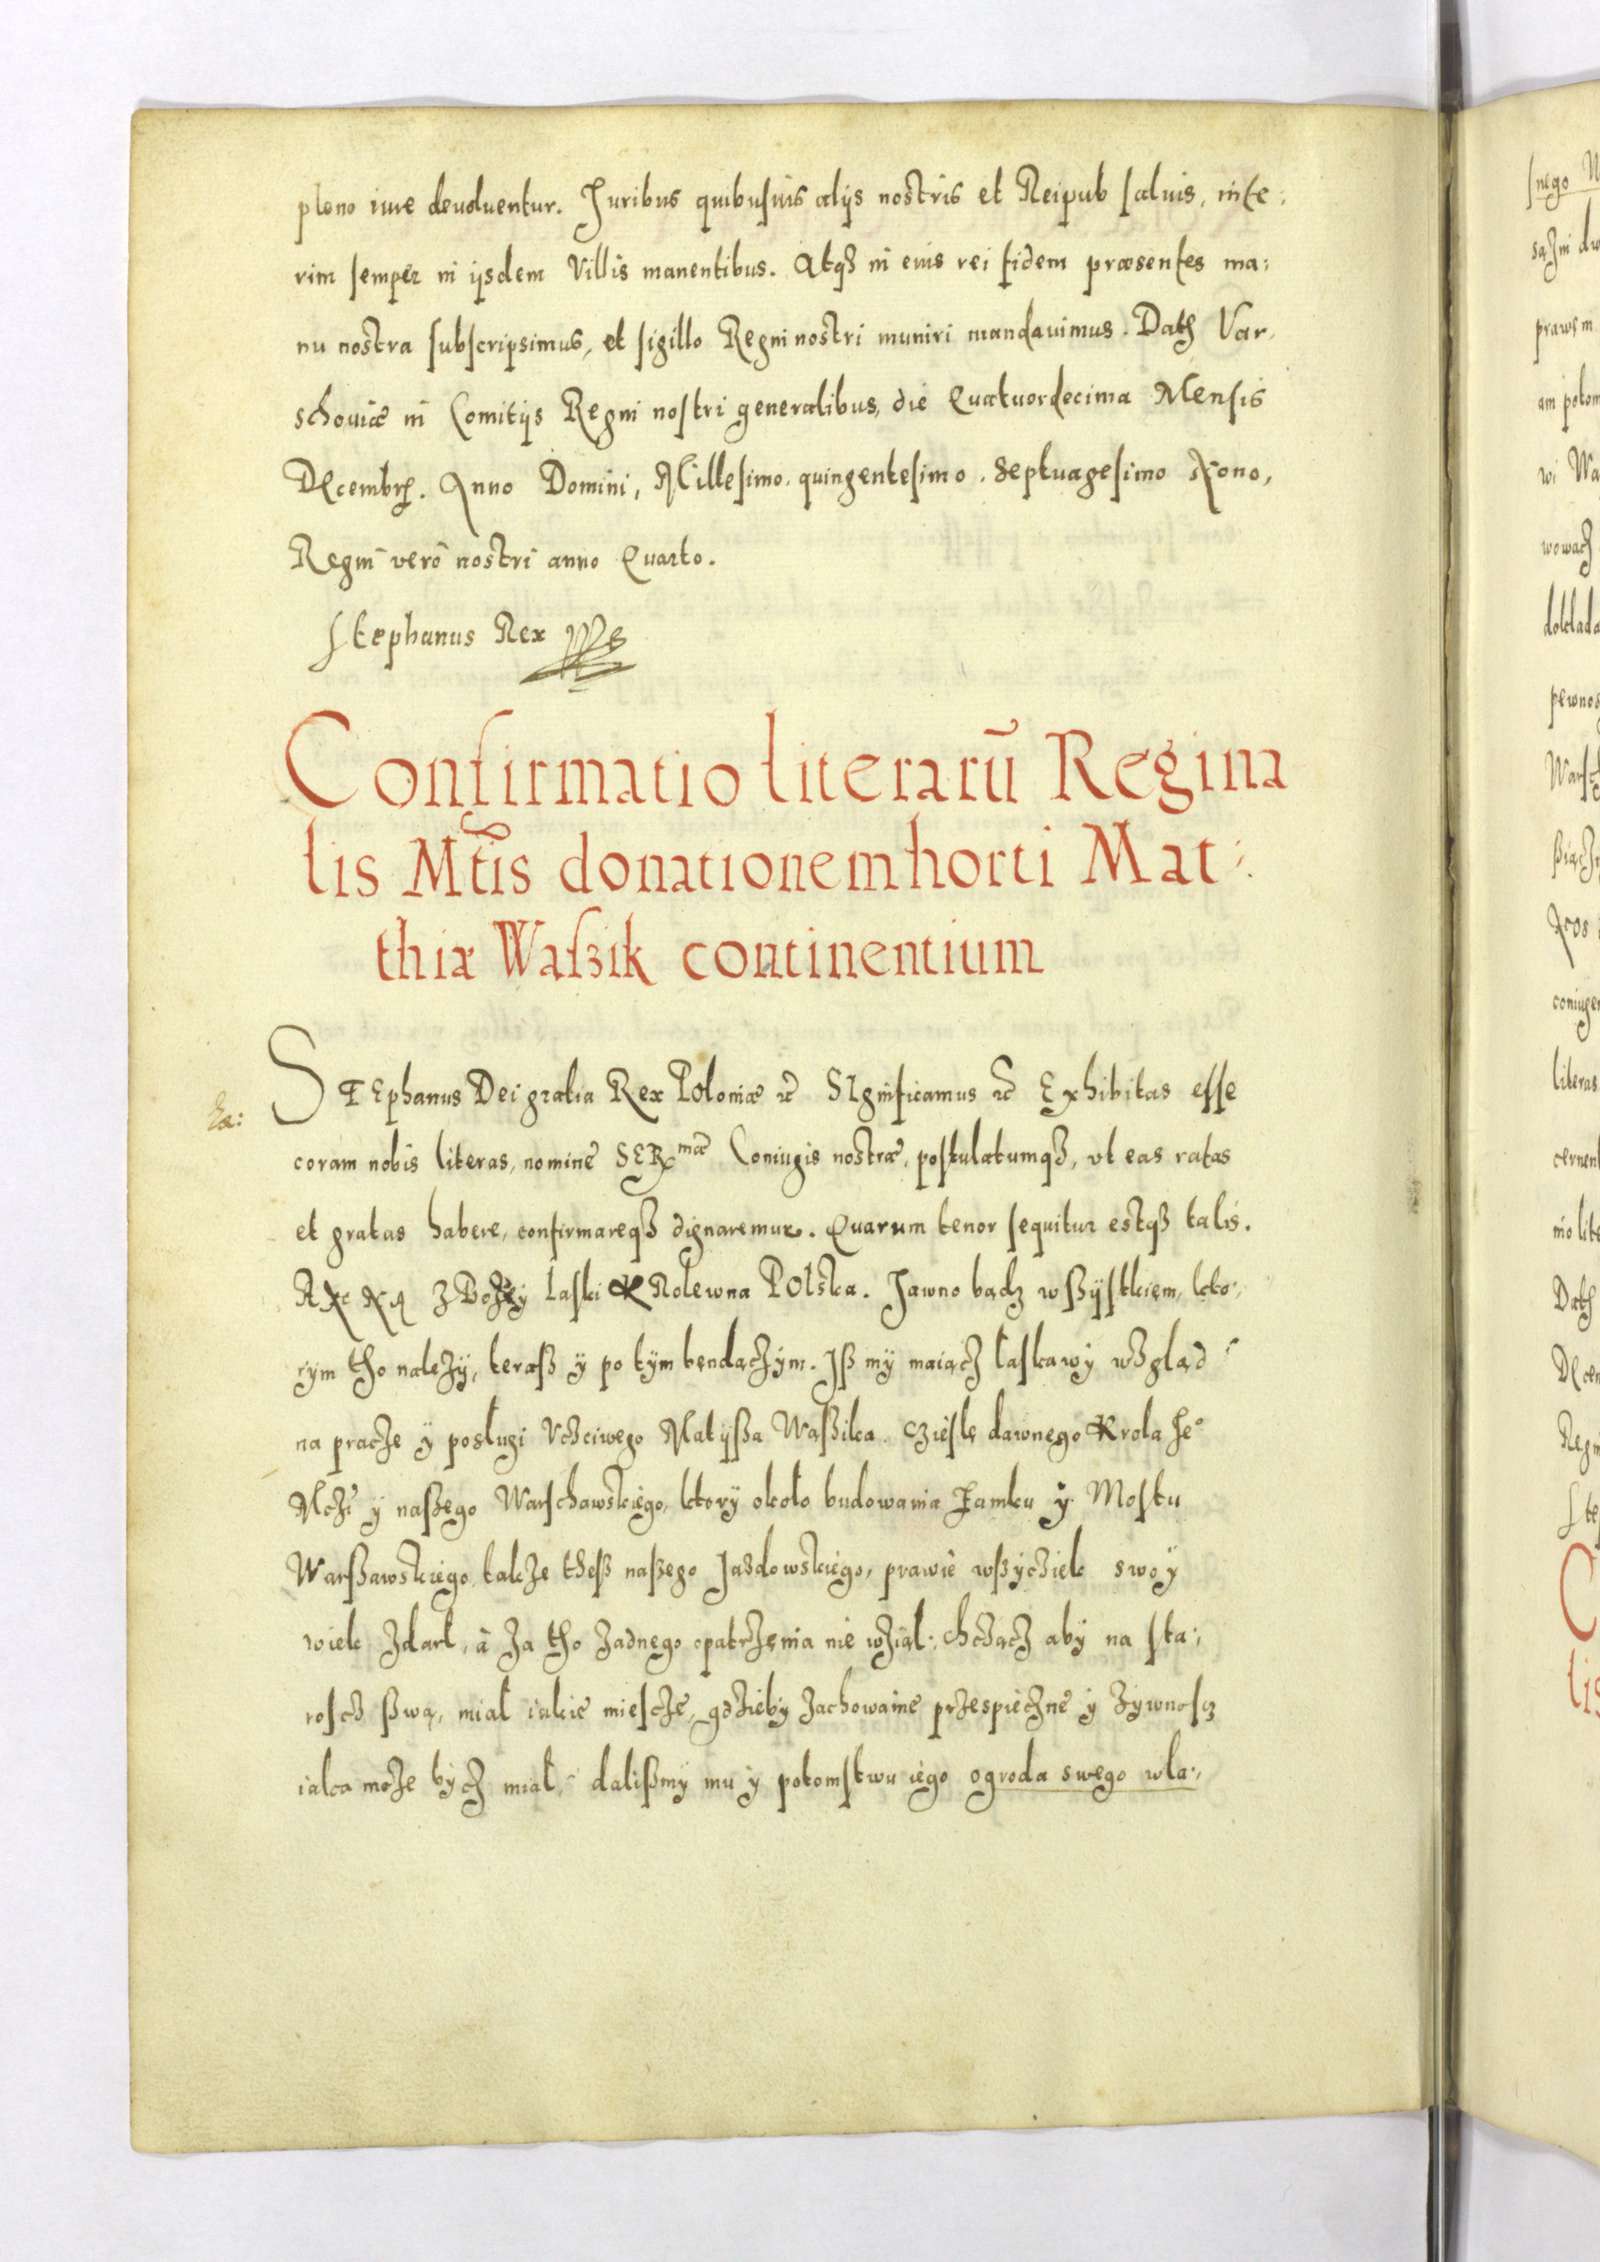 pleno iure deuoluentur. Juribus quibusuis alijs nostris et Reipub saluis, inte:
rim semper in ijsdem Villis manentibus. Atqʒ in eius rei fidem præsentes ma:
nu nostra subscripsimus, et sigillo Regni nostri muniri mandauimus. Datʒ Var,
schouiæ in Comitijs Regni nostri generalibus, die Quatuordecima Mensis
Decembrʒ. Anno Domini, Millesimo. quingentesimo. Septuagesimo Nono,
Regni verò nostri anno Quarto.
Stephanus Rex
Confirmatio literarū Regina
lis Mtis donationem horti Mat:
thiæ Waſzik continentium
STEphanus Dei gratia Rex Poloniæ etc SIgnificamus etc Exhibitas esse
coram nobis literas, nomine SERmæ Coniugis nostræ, postulatumqʒ, vt eas ratas
et gratas habere, confirmareqʒ dignaremur. Quarum tenor sequitur estqʒ talis.
ANNA Z Bożey łaski Krolewna Polska. Jawno bądz wßÿstkiem, kto:,
rÿm tho należÿ, teraß ÿ po tÿm bendączÿm. Jß mÿ maiącz łaskawÿ wʒgląd
na pracże ÿ poslugi Vcżciwego Matÿßa Waßika. cżieslę dawnego Krola Jeo
Mcżi ÿ naßego Warschawskiego, ktorÿ około budowania Zamku ÿ Mostu
Warßawskiego, także theß naßego Jazdowskiego, prawie wßÿcżiek swoÿ
wiek zdarł, á za tho żadnego opatrżenia nie wżiął:, chcżącż abÿ na sta:,
roscż ßwą, miał iakie miescże, gdżiebÿ zachowanie przespiecżne ÿ żÿwnoscż
iaka może bÿcż miał, dalißmÿ mu ÿ potomstwu iego ogroda swego wła:,